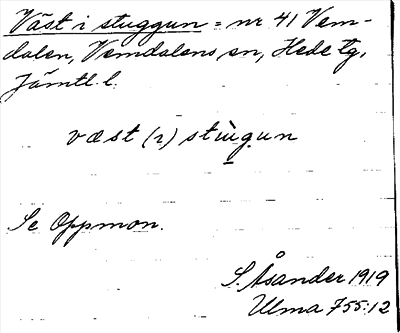 Väst i stuggun = nr 41 Vem-
dalen, Vemdalens sn, Hede tg,
Jämtl. l.
væst (ɪ) stùgun
Se Oppmon.
S. Åsander 1919
Ulma 755:12